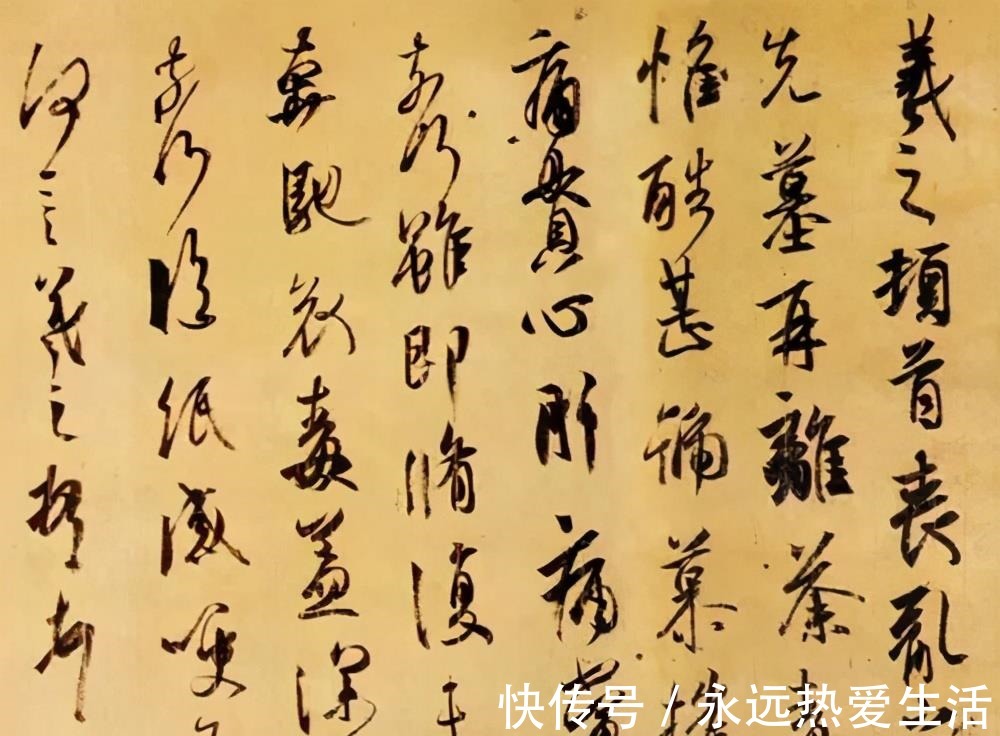 羲之頓首喪亂
先墓再離荼毒
惟酷甚號慕摧
痛貫心肝痛當
奈何雖即脩復
奔馳哀毒益深
奈何臨紙感哽
何言羲之頓首
快传号/永远热爱生活